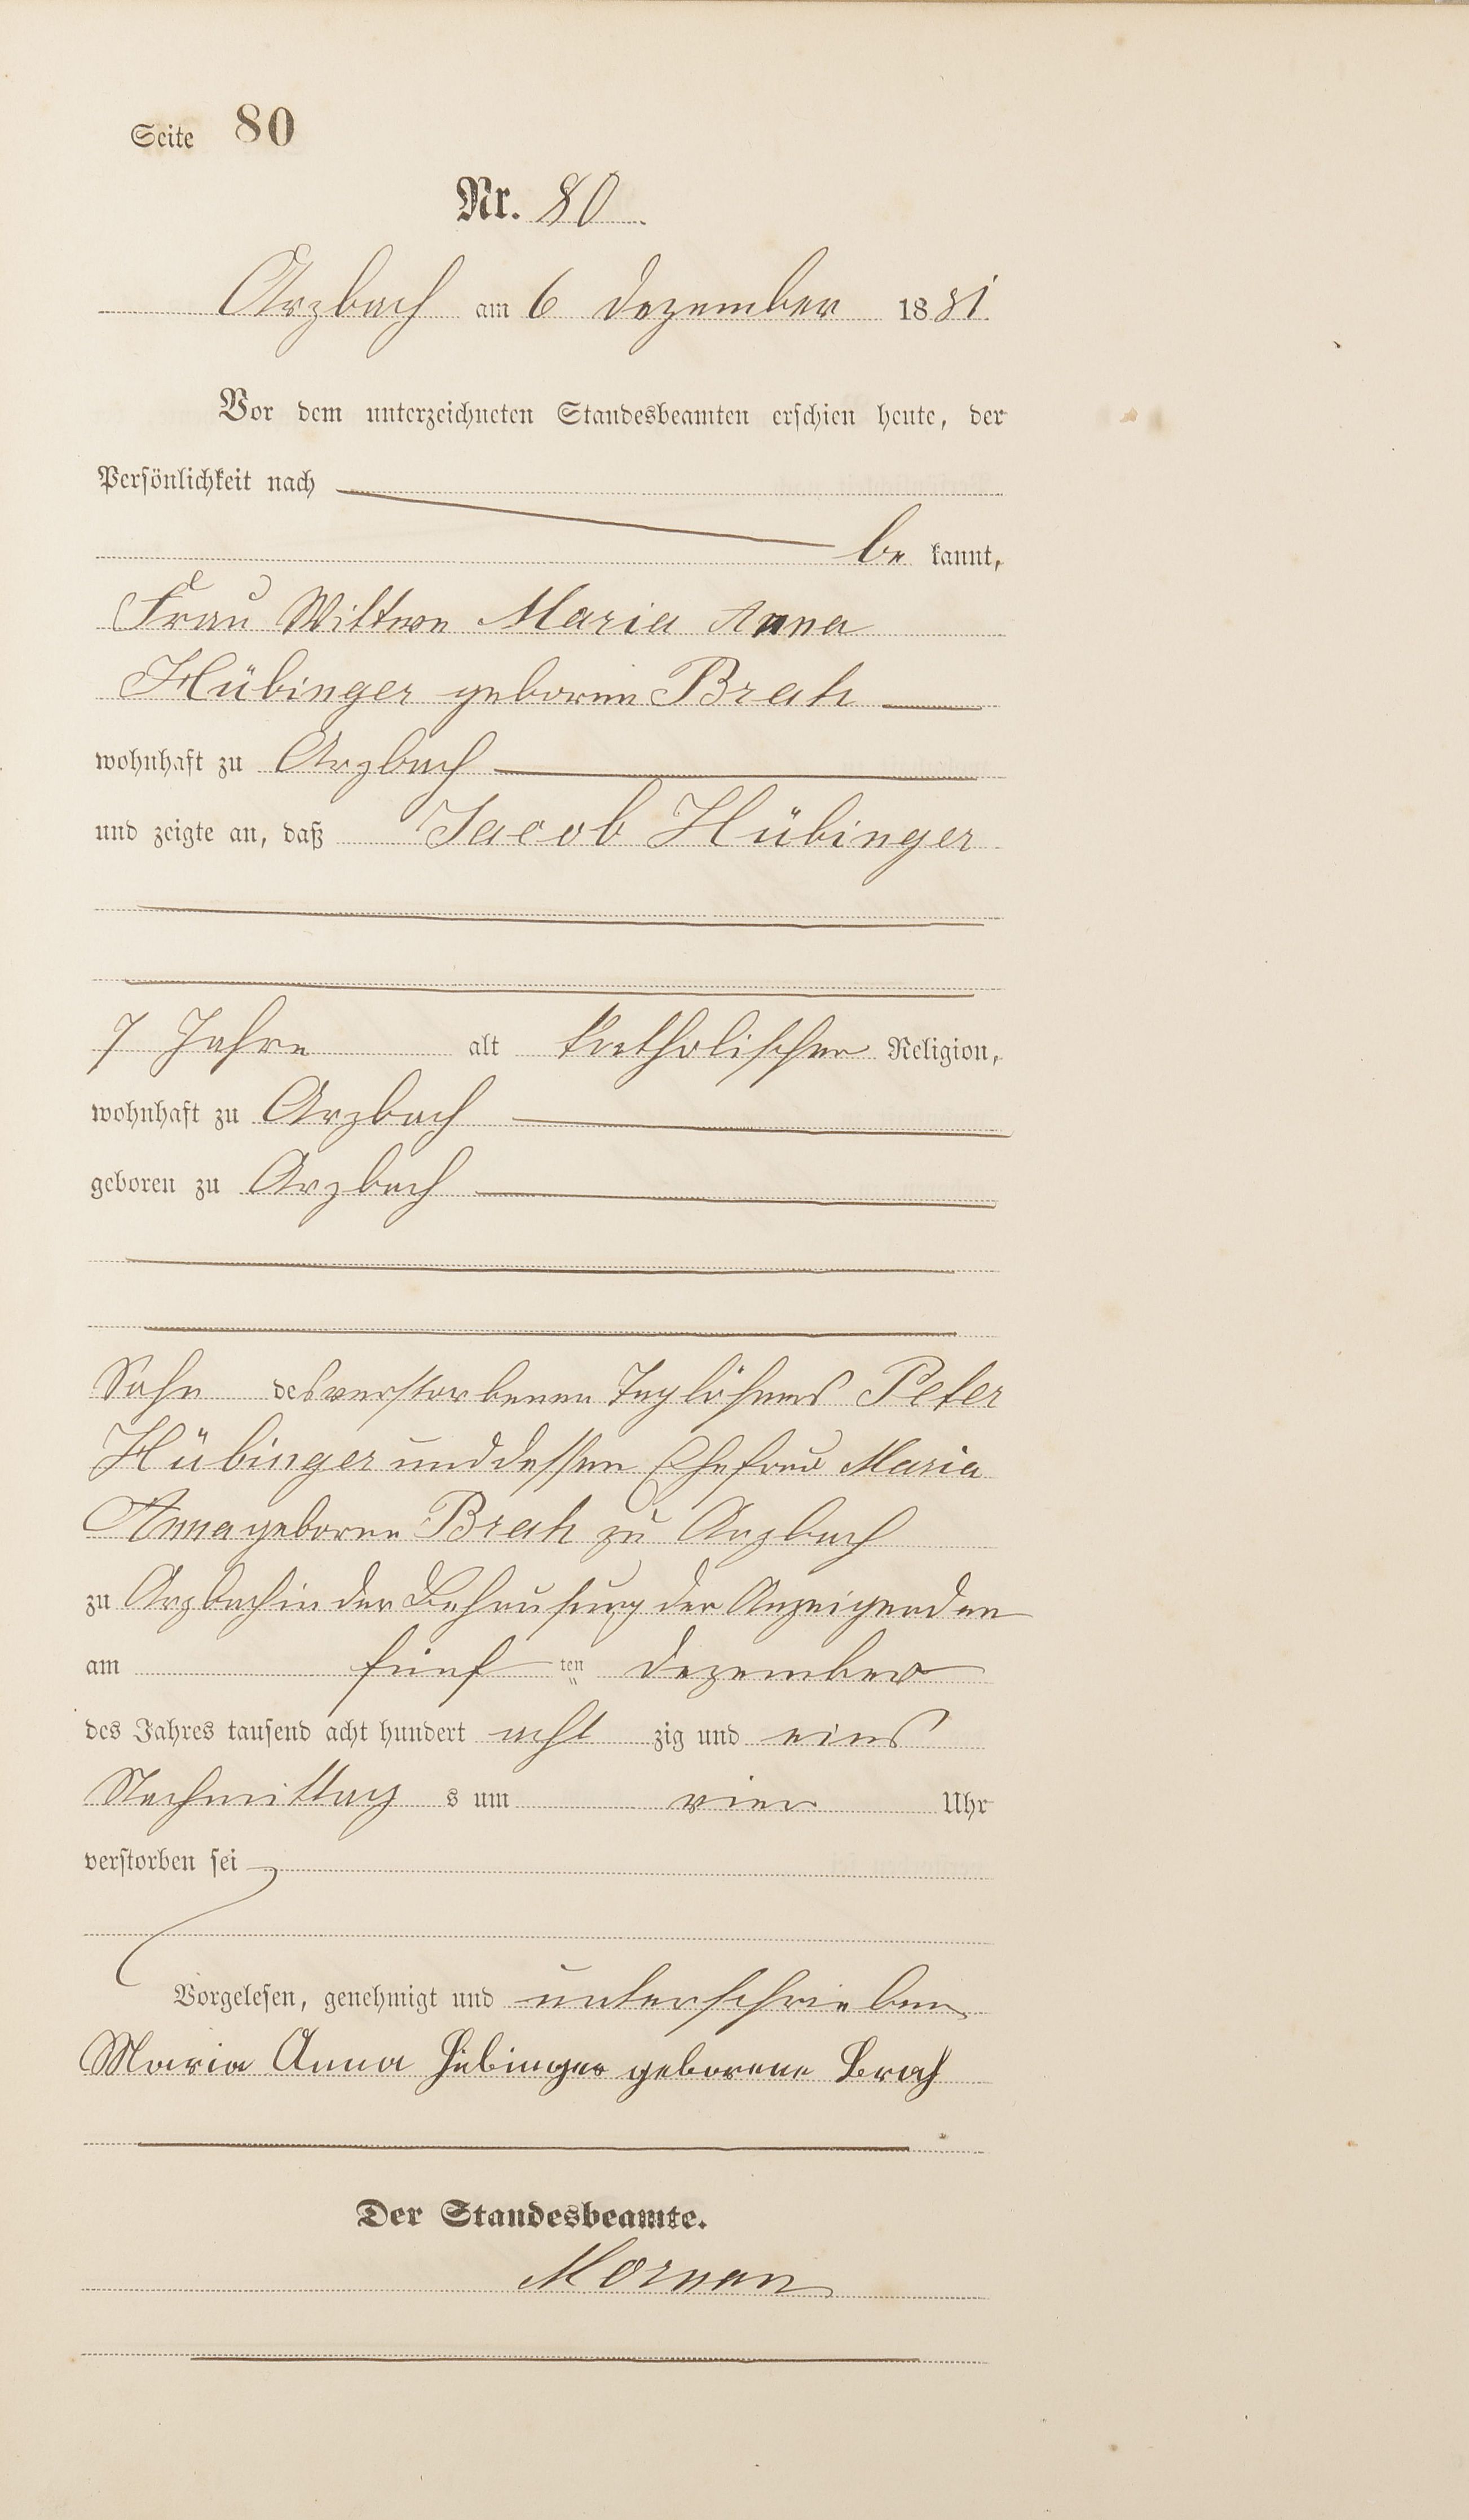 Seite 80
Nr. 80
Arzbach am 6 Dezember 1881
Vor dem unterzeichneten Standesbeamten erschien heute, der
Persönlichkeit nach
be kannt,
Frau Wittwe Maria Anna
Hübinger geborene Brah
wohnhaft zu Arzbach
und zeigte an, daß Jacob Hübinger
7 Jahre alt katholischer Religion,
wohnhaft zu Arzbach
geboren zu Arzbach
Sohn des verstorbenen Taglöhners Peter
Hübinger und dessen Ehefrau Maria
Anna geborne Brah zu Arzbach
zu Arzbach in der Behausung der Anzeigenden
am fünf ten Dezember
des Jahres tausend acht hundert acht zig und eins
Nachmittag s um vier Uhr
verstorben sei
Vorgelesen, genehmigt und unterschrieben
Maria Anna Hübinger geborene Brah
Der Standesbeamte.